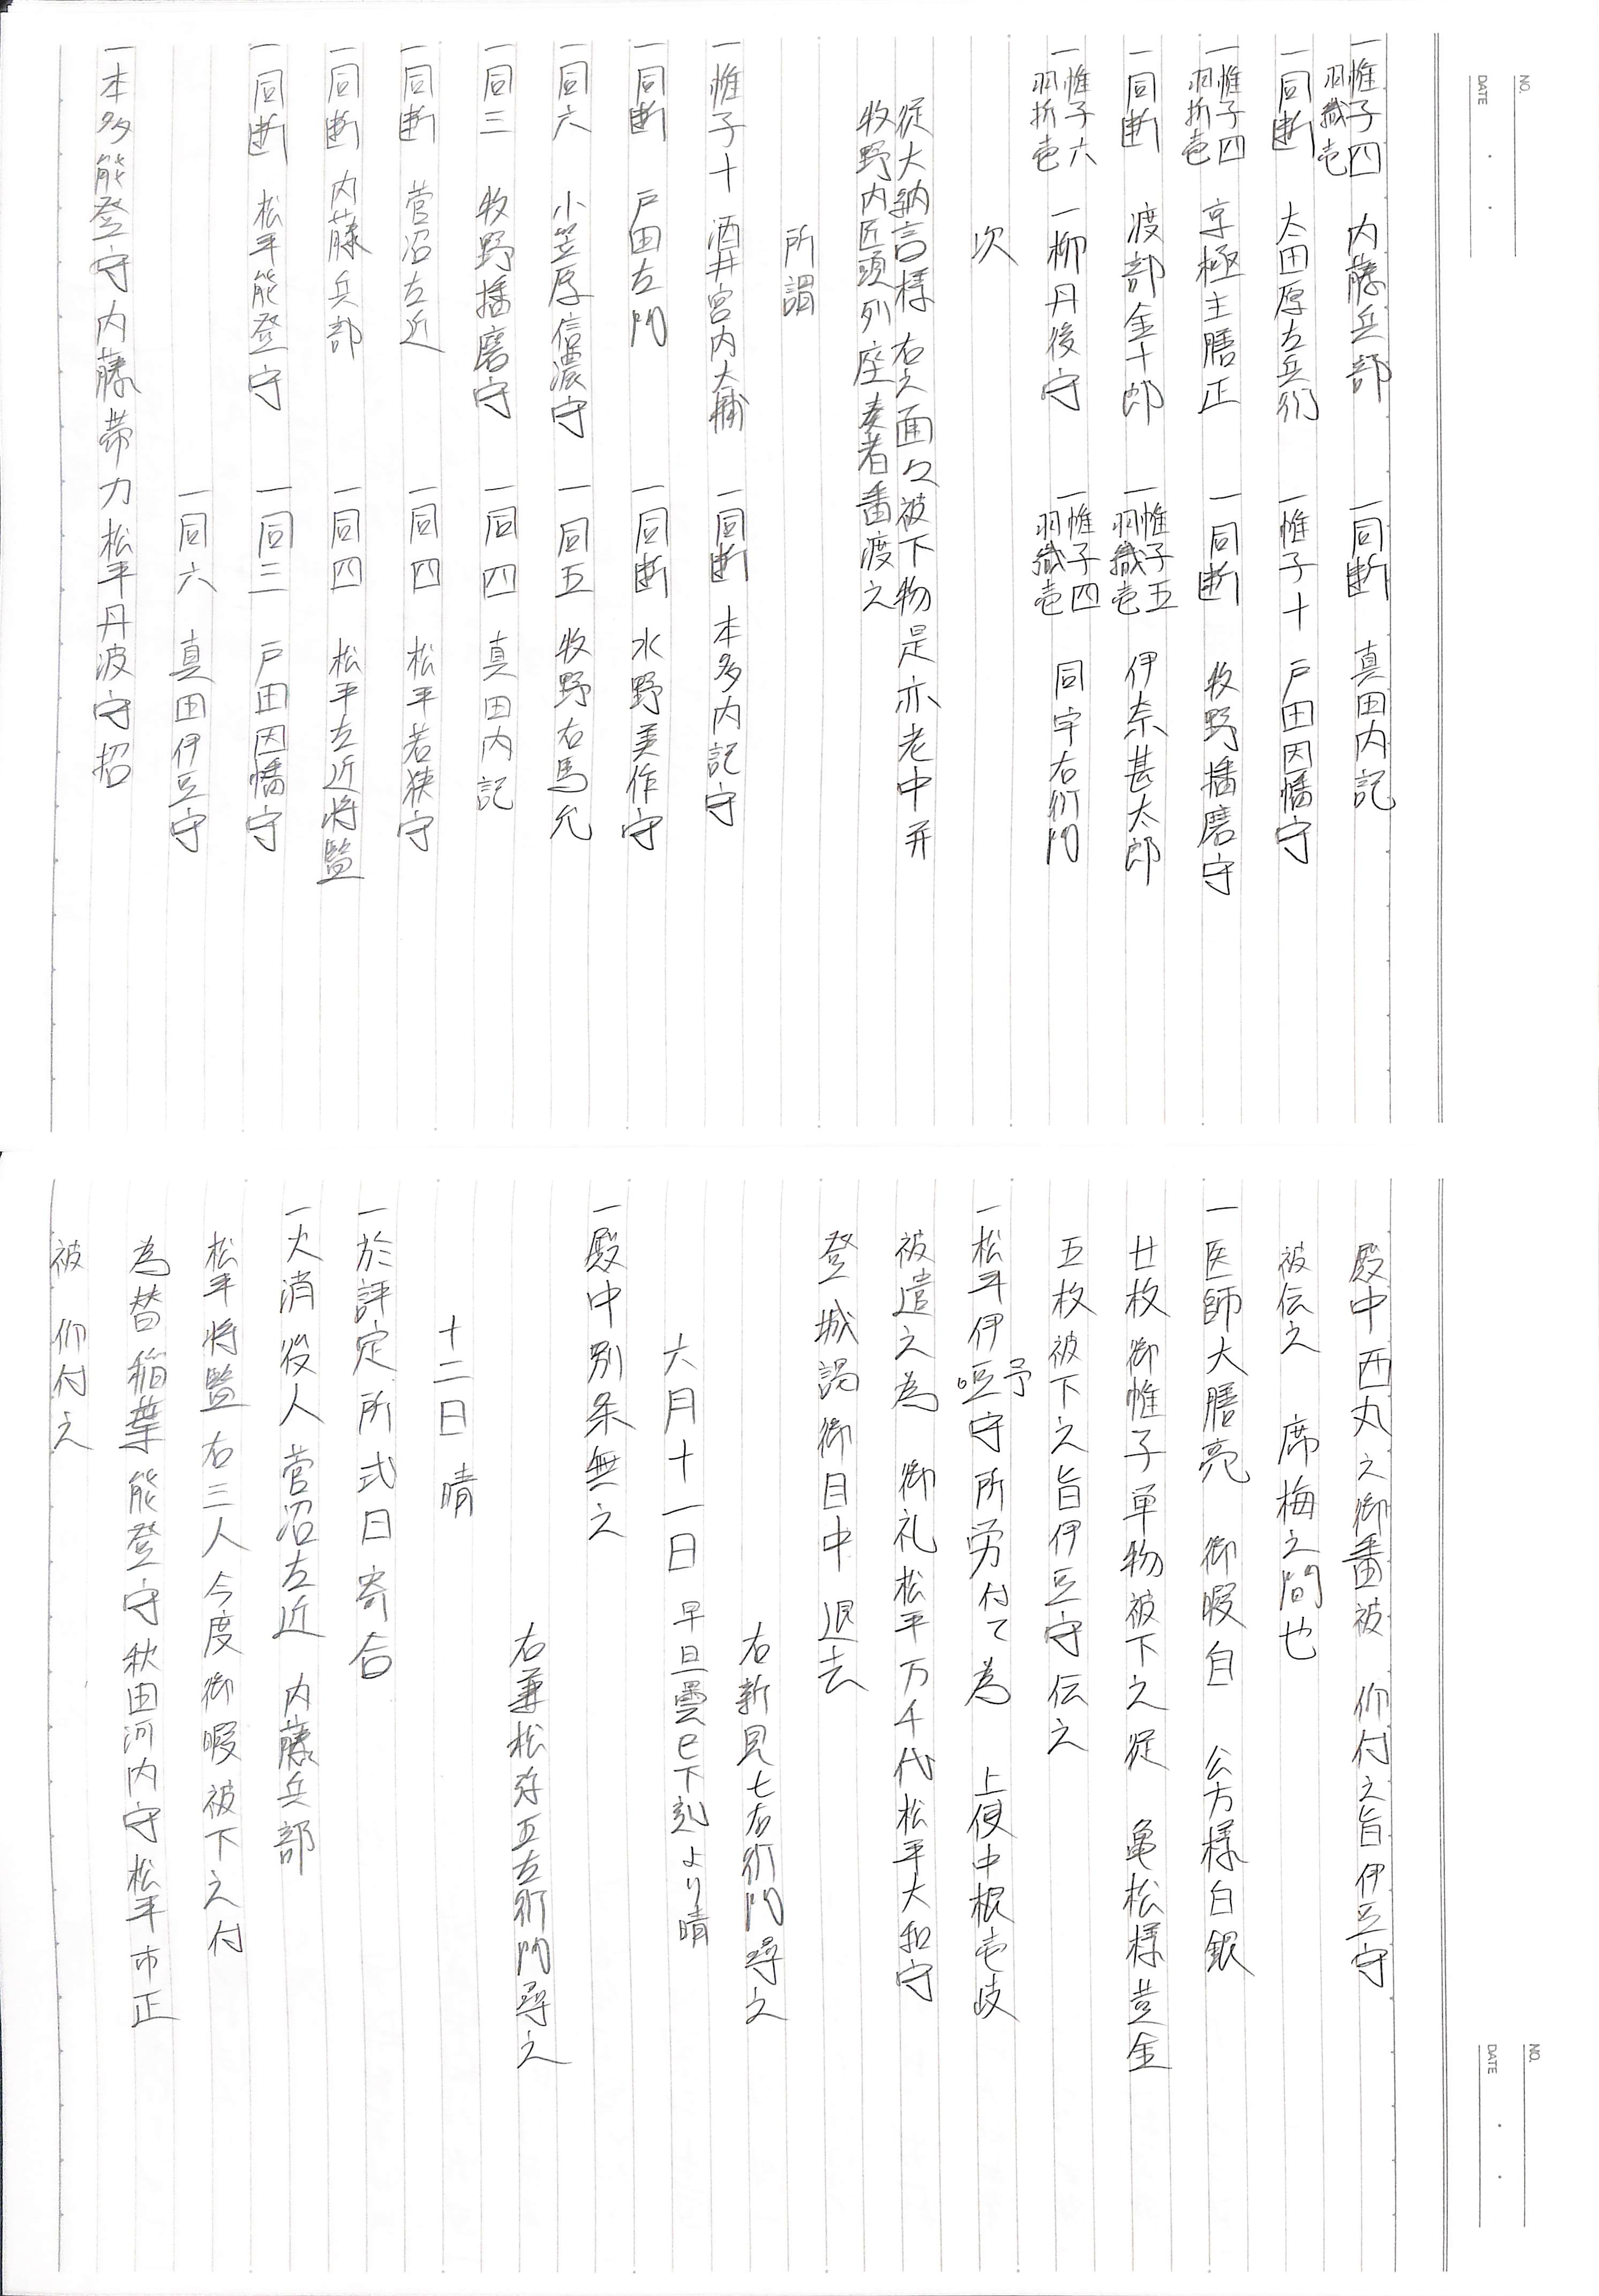 NO.
DATE
一 帷子四 羽織壱 内藤兵部 一同断 真田内記
一同断 太田原左兵衛 一帷子十 戸田因幡守
一 帷子四 羽折壱 京極主膳正 一同断 牧野播磨守
一同断 渡部金十郎 一 帷子五 羽織壱 伊奈甚太郎
一 帷子六 羽折壱 一柳丹後守 一 帷子四 羽織壱 同宇右衛門
次
従大納言様右之面々被下物是亦老中并
牧野内匠頭列座奏者番渡之
所謂
一帷子十 酒井宮内大輔 一同断 本多内記守
一同断 戸田左門 一同断 水野美作守
一同六 小笠原信濃守 一同五 牧野右馬允
一同三 牧野播磨守 一同四 真田内記
一同断 菅沼左近 一同四 松平若狭守
一同断 内藤兵部 一同四 松平左近将監
一同断 松平能登守 一同三 戸田因幡守
一同六 真田伊豆守
一本多能登守内藤帯刀松平丹波守招
NO.
DATE
殿中西丸之御番被 仰付之旨伊豆守
被伝之 席梅之間也
一医師大膳亮 御暇自 公方様白銀
廿枚御帷子単物被下之従 亀松様黄金
五枚被下之旨伊豆守伝之
一松平伊豆守所労付て為 上使中根壱岐
予
被遣之為 御礼松平万千代松平大和守
登城謁御目中退去
右新見七右衛門尋之
六月十一日 早旦曇巳下刻より晴
一殿中別条無之
右兼松弥五左衛門尋之
十二日 晴
一於評定所式日寄合
一火消役人菅沼左近 内藤兵部
松平将監右三人今度御暇被下之付
為替稲葉能登守秋田河内守松平市正
被 仰付之